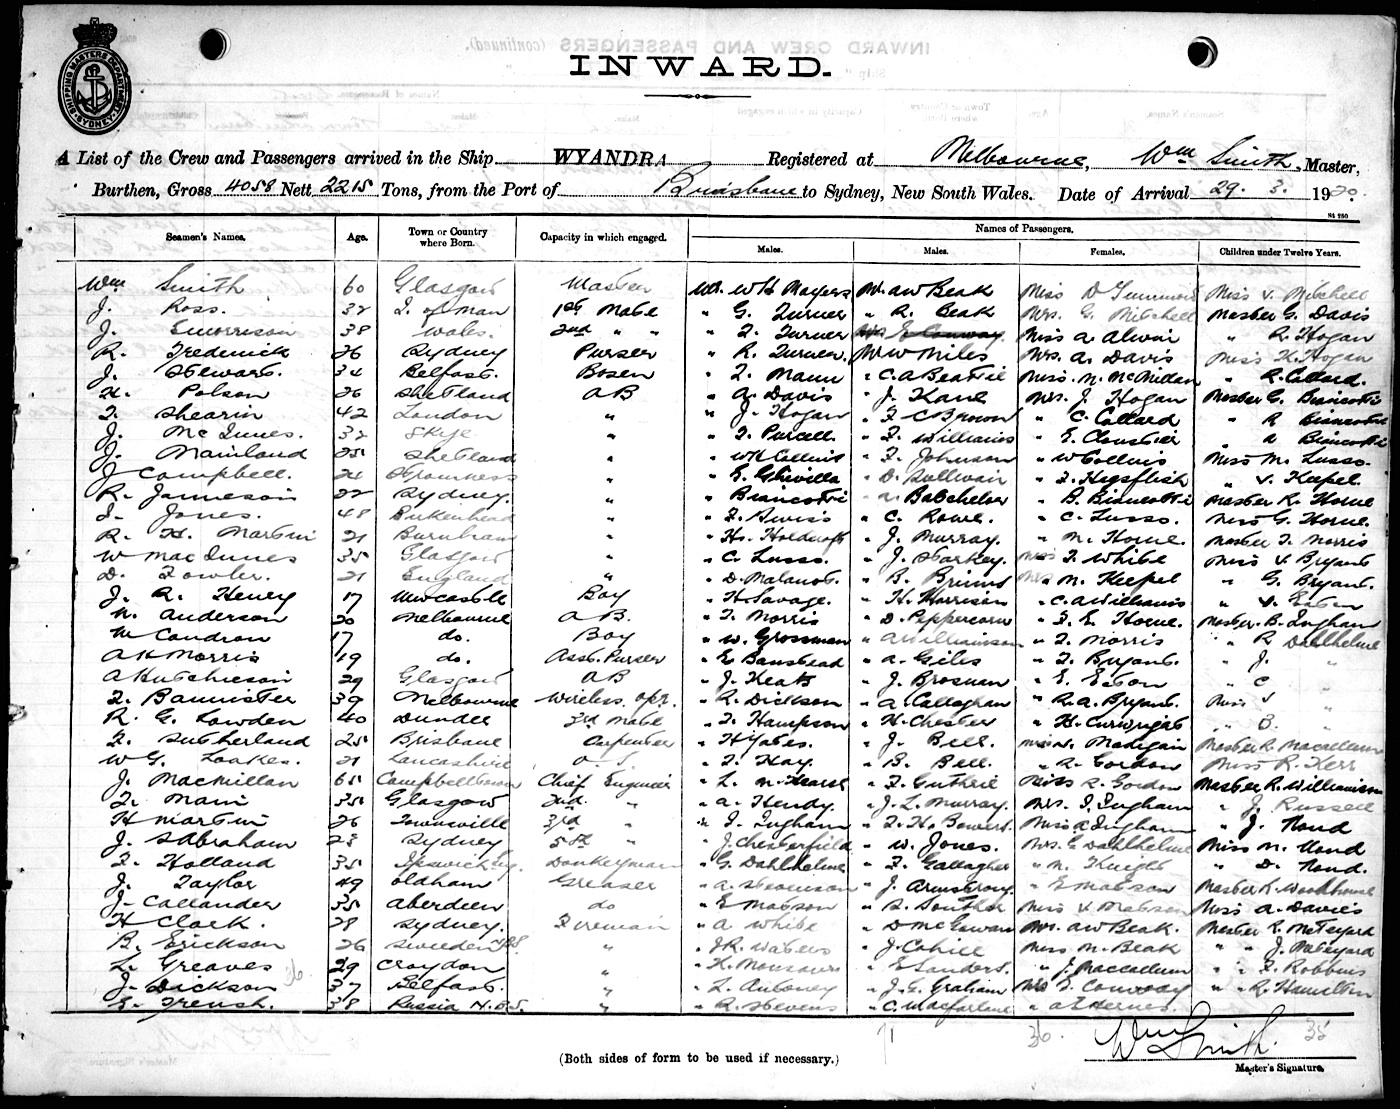 SHIPPING MASTERS DEPARTMENT SYDNEY
INWARD.
A List of the Crew and Passengers arrived in the Ship WYANDRA Registered at Melbourne, Wm Smith, Master,
Burthen, Gross 4058 Nett 2215 Tons, from the Port of Brisbane to Sydney, New South Wales. Date of Arrival 29. 3. 1920.
St 250
Seamen's Names. Age. Town or Country where Born. Capacity in which engaged. Names of Passengers.
Males. Males. Females. Children under Twelve Years.
Wm Smith 60 Glasgow Master Mr. W H Mayers Mr. A W Beak Miss D Miss V. Mitchell
J. Ross. 32 I. of Man 1st Mate " G. Turner " R. Beak Mrs. G. Mitchell Master G. Davis
J. 38 Wales. 2nd " " Turner Mrs E Conway Miss A. Alwin " R. Hogan
R. Frederick 26 Sydney Purser " R. Turner. Mr W Miles Mrs. A. Davis Miss K. Hogan
J. Stewart. 34 Belfast. Bosen " J. Mann " C. A Beattie Miss. M. McMillan " R. Collard.
H. Polson 26 Shetland AB " A. Davis " J. Kane Mrs. J. Hogan Master G. Biancotti
J. Shearin 42 London " " J. Hogan " F C Brown " C. Collard " R Biancotti
J. McInnes. 32 Skye " " J. Purcell. " F. Williams " E. Cloustier " A Biancotti
J. Mainland 25 Shetland " " W H Collins " F. Johnson " W Collins Miss M. Lusso.
J Campbell. 24 Stromness " " E. Glivilla " D. Sullivan " F. " V. Keepel.
R. Jamieson 22 Sydney. " " Biancotti " A. Batchelor " B. Biancotti Master R. Horne
J. Jones. 48 Birkenhead " " " C. Rowe. " C. Lusso. Miss G. Horne.
R. H. Martin 21 Burnham " " H. Holdcroft " J. Murray. " M. Horne. Master F. Norris
W MacInnes 35 Glasgow " " C. Lusso. " J Starkey. Mrs F. White Miss V. Bryant
D. Fowler. 21 England " " D. " B. Mrs M. Keepel " G. Bryant.
J. R. Henry 17 Newcastle Boy " H. Savage. " H. Harrison " C. A Williams " V. Eaton
W. Anderson 20 Melbourne A B. " J. Morris " D. Peppercorn " F. E. Horne. Master B. Ingham
W Condron 17 do. Boy " W. Grossman A Williamson " F. Morris " R Dahlhelme
A H Morris 19 do. Asst. Purser " E Banstead " A. Giles " F. Bryant. " J. "
A Hutchieson 29 Glasgow AB " J. Keats " J. Brosnan " E. Eaton " C "
J. Bannister 39 Melbourne Wireless opr. " R. Dickson " A Callaghan " R. A. Bryant. Miss "
R. G. Lowden 40 Dundee 3rd Mate " J. Hampson " H. Chester " H. " B. "
J. Sutherland 25 Brisbane Carpenter " H Yates. " J. Bell. Miss Madigan Master R. Macallum
W G. Loakes. 21 Lancashire " J. Hay. " B. Bell. " R. Gordon Miss R. Kerr
J. Macmillan 65 Campbelltown Chief Engineer " L. " F. Guthrie Miss R. Gordon Master R. Williamson
J. Mann 35 Glasgow 2nd " " A. Hendy " J. L. Murray. Mrs. J. Ingham " J. Russell
H Martin 26 Townsville 3rd " " J. Ingham " F. H. Bowers. Miss A Ingham " J. Nond
J. S Abraham 23 Sydney 5th " " J. Chesterfield " W. Jones. Mrs. G. Dahlhelme Miss M. Nond
J. Holland 35 Ipswich Eng. Donkeyman " G. Dahlhelme " F. Gallagher " M. Knight " D. Nond.
J. Taylor 49 Oldham Greaser " A. Stevenson " J. Armstrong. " E Matson Master R. Woodhouse
J- Callander 35 Aberdeen do " E Matson " Miss V. Matson Miss A. Davies
H Clark. 28 Sydney. Fireman " A White " D McGowan Mrs. A W Beak. Master R. McTeyard
B. Erickson 26 Sweden " " J R. Waters " J. Cahill Miss M. Beak " " J. McTeyard
L. Greaves 29 Croydon " " H. " E Sanders. " J. Maccallum " F. Robbins
J. Dickson 37 Belfast. " " L. " J. G. Graham Mrs E. Conway " R. Hamilton
E. French. 38 Russia N.B.S. " " R. Stevens " C. Macfarlane " A E Hernes.
71 36. 35
Wm Smith.
(Both sides of form to be used if necessary.)
Master's Signature.